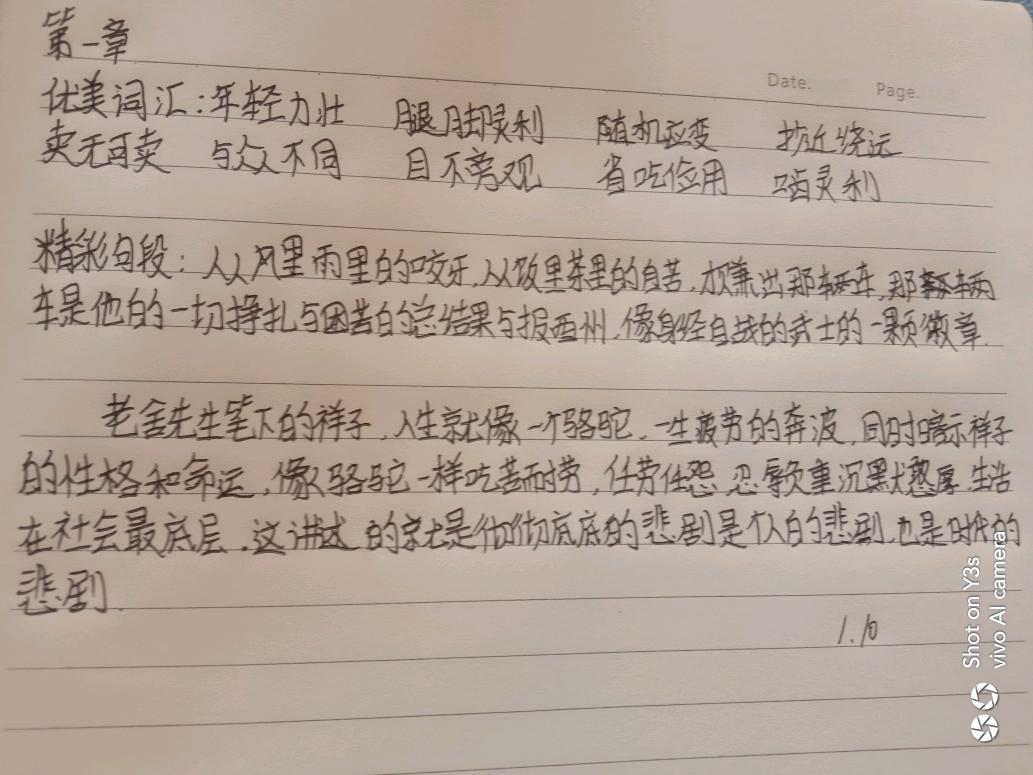 第一章
Date. Page.
优美词汇:年轻力壮 腿脚灵利 随机应变 抄近绕远
卖无可卖 与众不同 目不旁观 省吃俭用 嘴灵利
精彩句段:从风里雨里的咬牙,从饭里茶里的自苦,才赚出那辆车,那辆
车是他的一切挣扎与困苦的总结果与报酬,像身经百战的武士的一颗徽章.
老舍先生笔下的祥子,人生就像一个骆驼,一生疲劳的奔波,同时暗示祥子
的性格和命运,像骆驼一样吃苦耐劳,任劳任怨,忍辱负重沉默憨厚,生活
在社会最底层.这讲述的就是彻彻底底的悲剧是个人的悲剧,也是时代的
悲剧.
1.10
Shot on Y3s
vivo AI camera